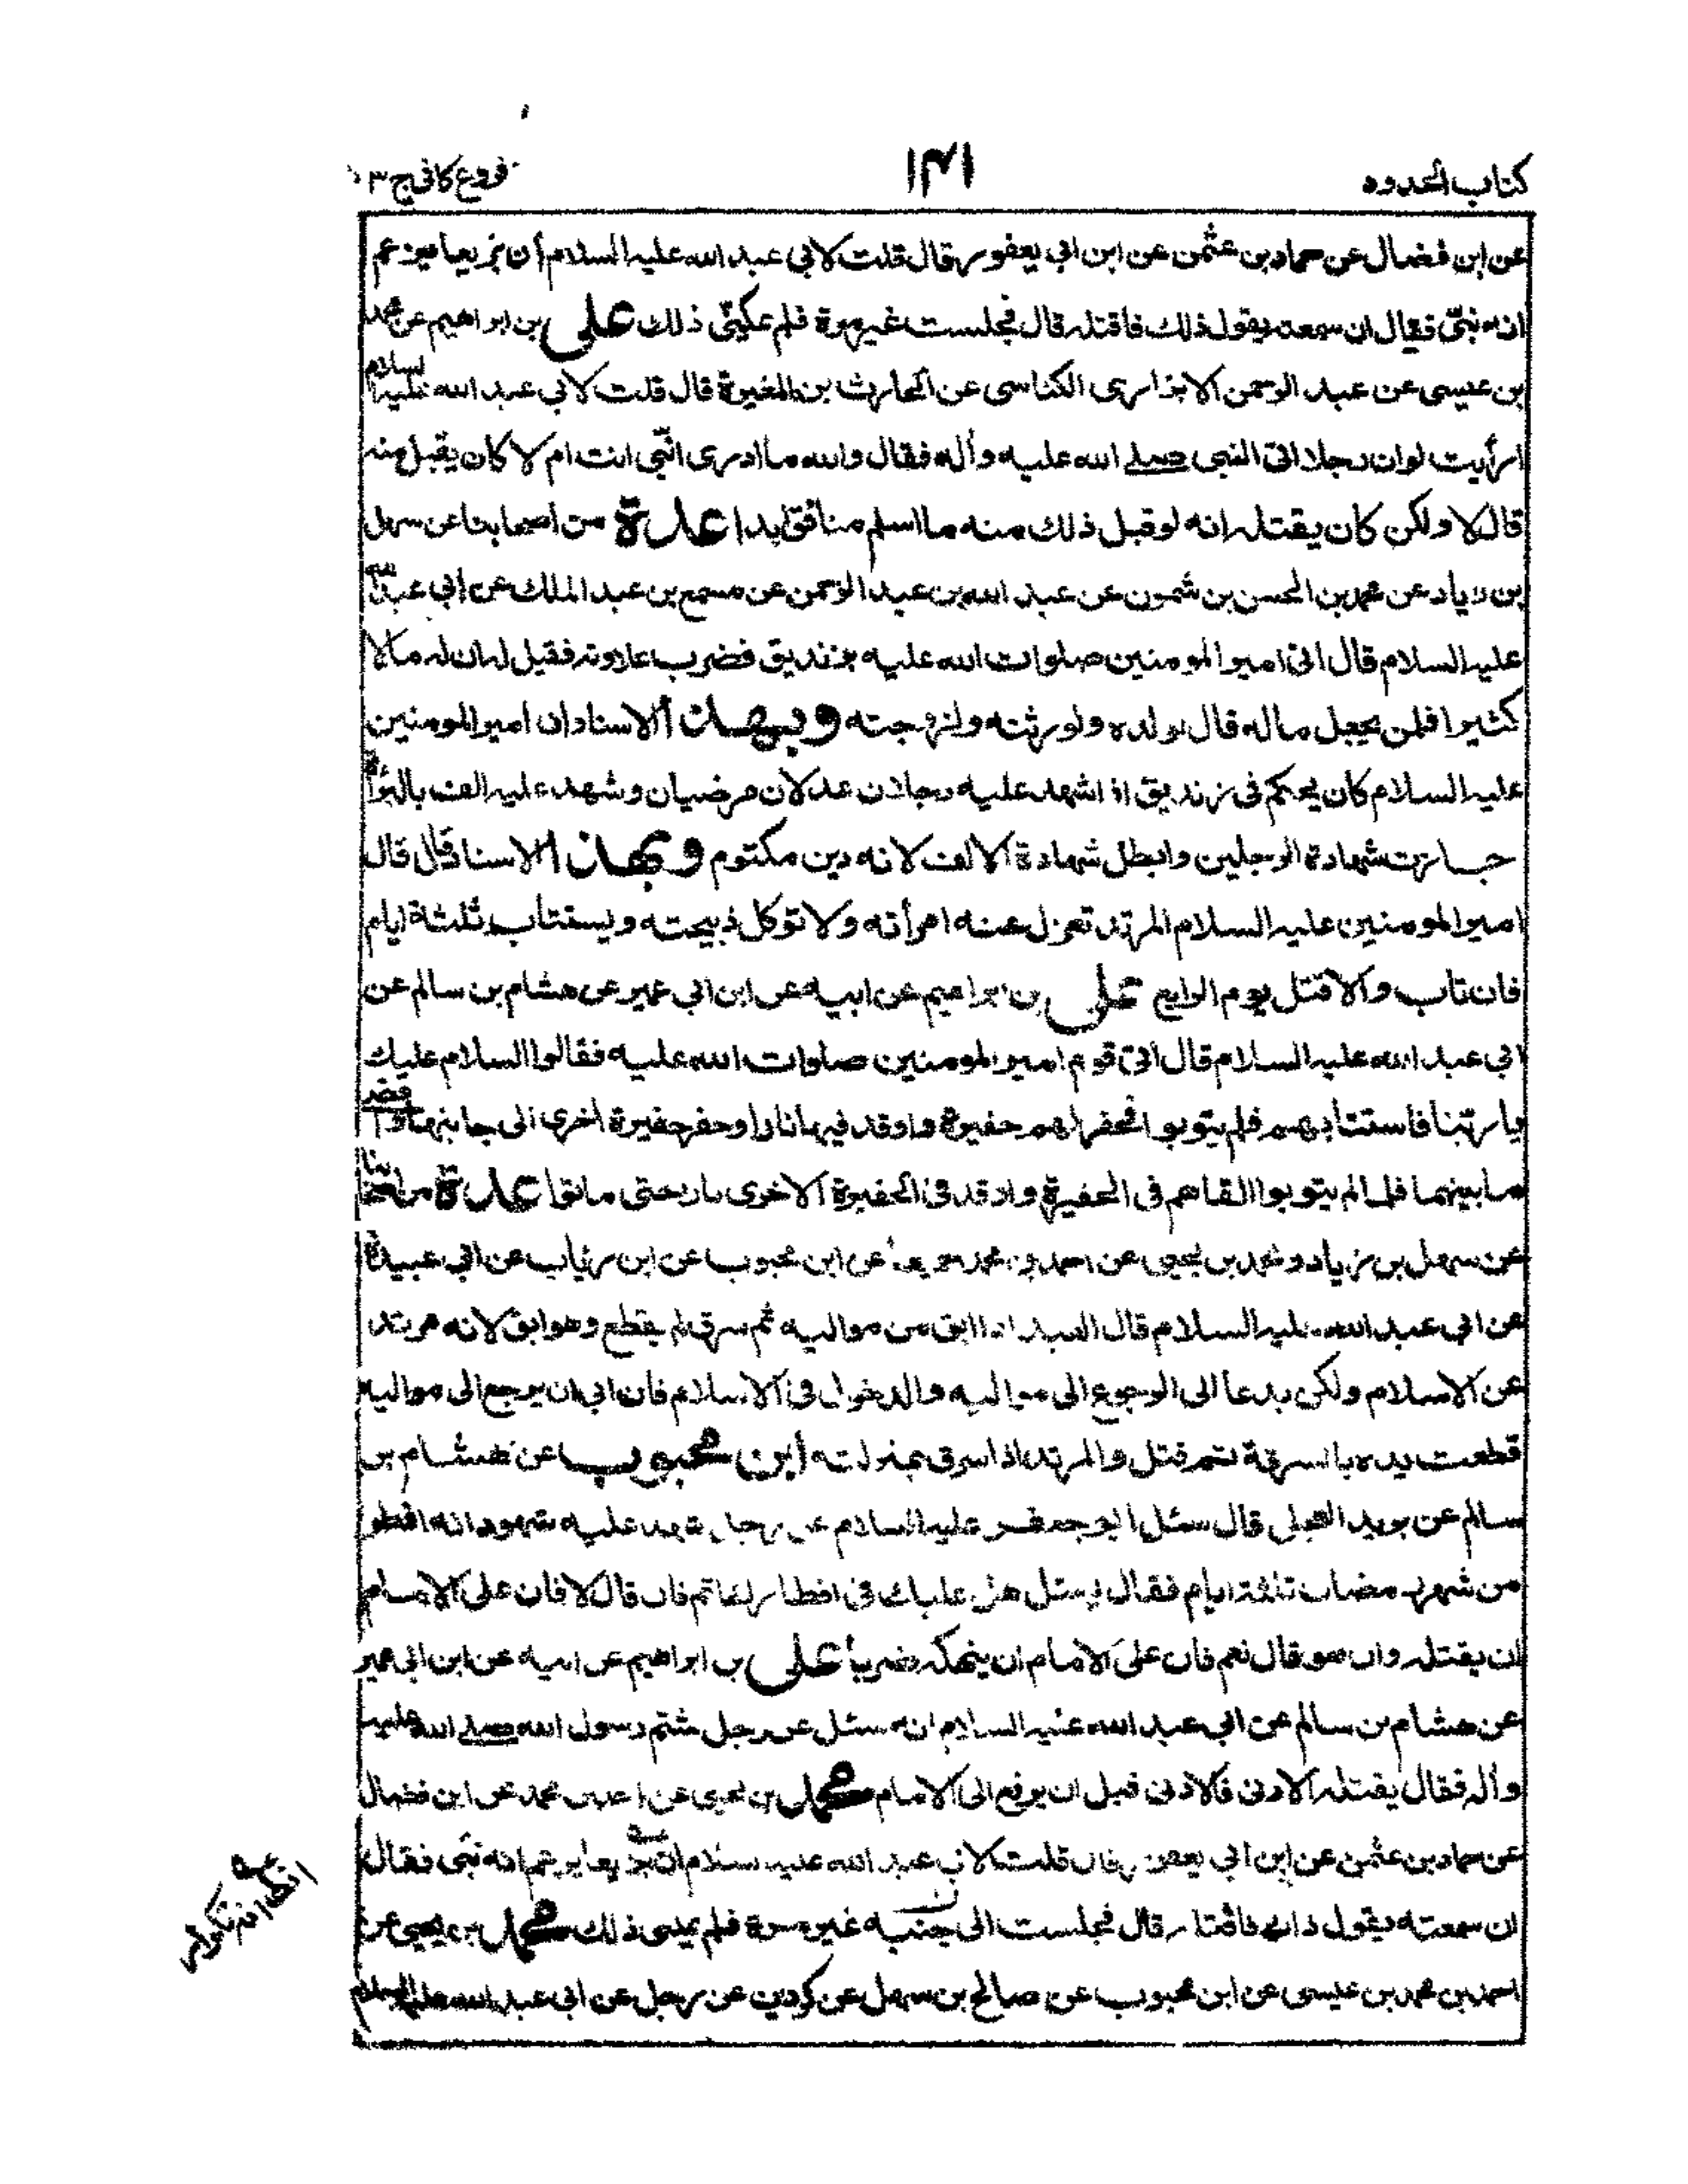 كتاب الحدود
١٤١
فروع كافى ج ٣
عن ابن فضال عن حماد بن عثمن عن ابن ابي يعفور قال قلت لابي عبد الله عليه السلام أن بزيعا يزعم
انه نبىّ فقال ان سمعته يقول ذلك فاقتله قال فجلست غير مرة فلم يمكنّى ذلك على بن ابراهيم عن محمد
بن عيسى عن عبد الرحمن الابزارى الكناسى عن الحارث بن المغيرة قال قلت لابي عبد الله عليه السلام
ارأيت لو ان رجلا اتى النبى صلى الله عليه وأله فقال والله ما ادرى انبّى انت ام لا كان يقبل منه
قال لا ولكن كان يقتله انه لو قبل ذلك منه ما اسلم منافق ابدا عدة من اصحابنا عن سهل
بن زياد عن محمد بن الحسن بن شمون عن عبد الله بن عبد الرحمن عن مسمع بن عبد الملك عن أبي عبد الله
عليه السلام قال اتى امير المومنين صلوات الله عليه بزنديق فضرب علاوته فقيل له ان له مالا
كثيرا فلمن يجعل ماله قال لولده ولورثته ولزوجته وبهذا الاسناد ان امير المومنين
عليه السلام كان يحكم فى زنديق اذا شهد عليه رجلان عدلان مرضيان وشهد عليه الف بالبرأة
جازت شهادة الرجلين وابطل شهادة الالف لانه دين مكتوم وبهذا الاسناد قال قال
امير المومنين عليه السلام المرتد تعزل عنه امرأته ولا توكل ذبيحته ويستتاب ثلثة ايام
فان تاب والا قتل يوم الرابع على بن ابراهيم عن ابيه عن ابن ابي عمير عن هشام بن سالم عن
ابي عبد الله عليه السلام قال اتى قوم امير المومنين صلوات الله عليه فقالوا السلام عليك
يا ربّنا فاستتابهم فلم يتوبوا فحفر لهم حفيرة واوقد فيها نارا وحفر حفيرة اخرى الى جانبها وافضى
ما بينهما فلما لم يتوبوا القاهم فى الحفيرة واوقد فى الحفيرة الاخرى نار حتى ماتوا عدة من اصحابنا
عن سهل بن زياد ومحمد بن يحيى عن احمد بن محمد جميعا عن ابن محبوب عن ابن رئاب عن ابي عبيدة
عن ابي عبد الله عليه السلام قال العبد اذا ابق من مواليه ثم سرق لم يقطع وهو ابق لانه مرتد
عن الاسلام ولكن يدعا الى الرجوع الى مواليه والدخول فى الاسلام فان ابى ان يرجع الى مواليه
قطعت يده بالسرقة ثم قتل والمرتد اذا سرق بمنزلته أبن محبوب عن هشام بن
سالم عن بريد العجلى قال سئل ابو جعفر عليه السلام عن رجل شهد عليه شهود انه افطر
من شهر رمضان ثلثة ايام فقال يسئل هل عليك فى افطارك اثم فان قال لا فان على الامام
ان يقتله وان هو قال نعم فان على الامام ان ينهكه ضربا على بن ابراهيم عن ابيه عن ابن ابي عمير
عن هشام بن سالم عن ابي عبد الله عليه السلام انه سئل عن رجل شتم رسول الله صلى الله عليه
وأله فقال يقتله الادنى فالادنى قبل ان يرفع الى الامام محمد بن يحيى عن احمد بن محمد عن ابن فضال
عن حماد بن عثمن عن ابن ابي يعفور قال قلت لابى عبد الله عليه السلام ان بزيعا يزعم انه نبّى فقال
ان سمعته يقول ذلك فاقتله قال فجلست الى جنبه غير مرة فلم يمكنى ذلك محمد بن يحيى عن
احمد بن محمد بن عيسى عن ابن محبوب عن صالح بن سهل عن كردين عن رجل عن ابي عبد الله عليه السلام